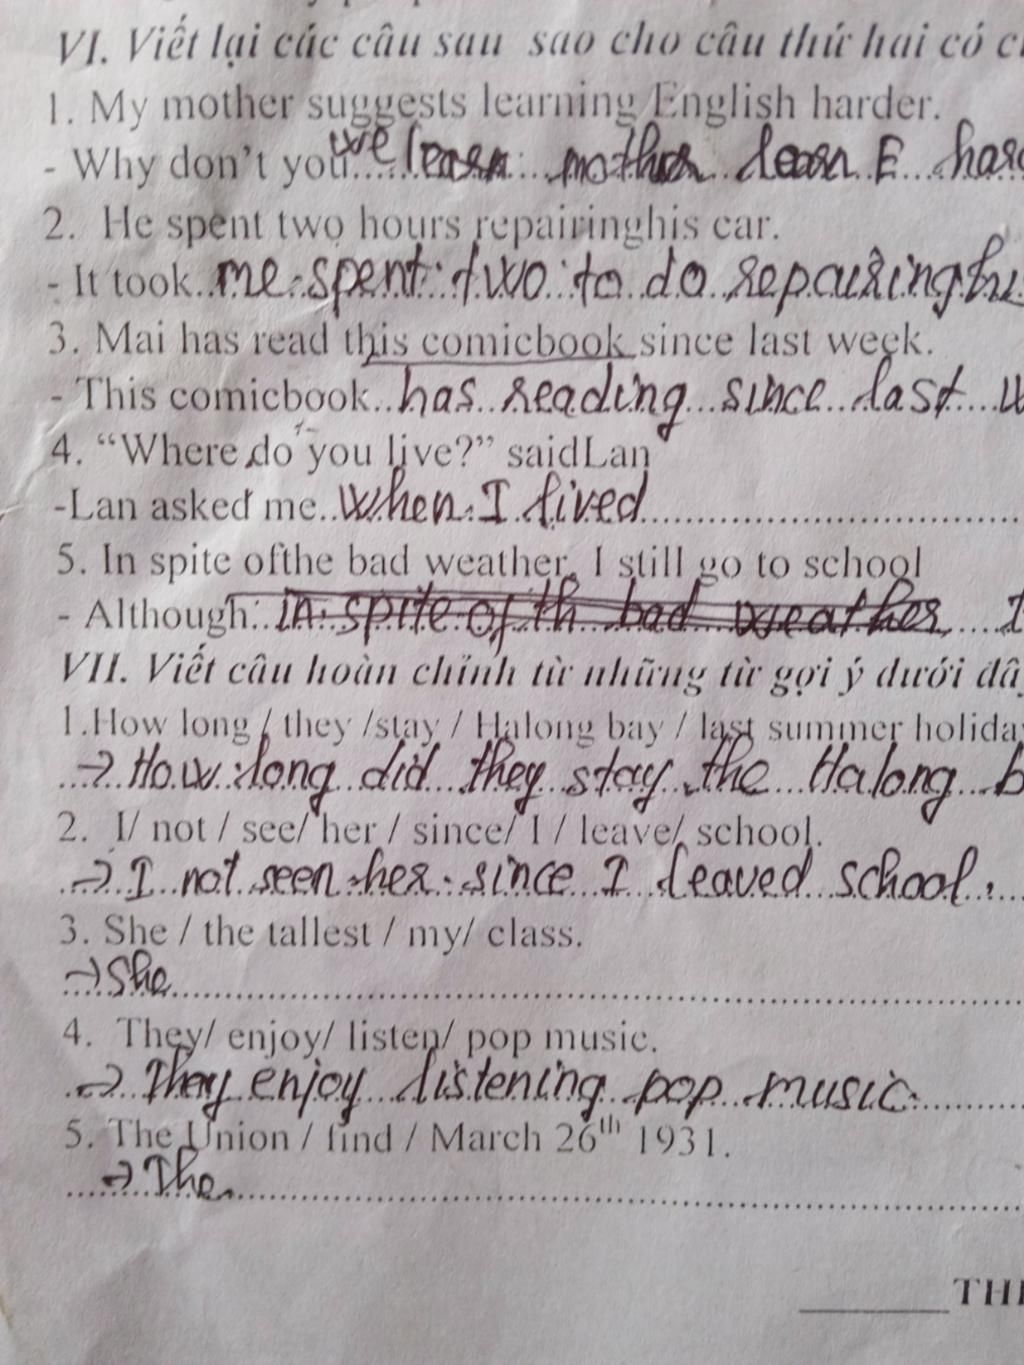 VI. Viết lại các câu sau sao cho câu thứ hai có
1. My mother suggests learning English harder.
we
- Why don't you learn mother learn E hard
2. He spent two hours repairinghis car.
- It took me spent two to do repairing hi
3. Mai has read this comicbook since last week.
- This comicbook has reading since last w
4. "Where do you live?" saidLan
-Lan asked me when I lived
5. In spite ofthe bad weather, I still go to school
- Although in spite of th bad weather I
VII. Viết câu hoàn chỉnh từ những từ gợi ý dưới đây
1.How long / they /stay / Halong bay / last summer holiday
→ How long did they stay the Halong b
2. I/ not / see/ her / since/ I / leave/ school.
→ I not seen her since I leaved school.
3. She / the tallest / my/ class.
→ She
4. They/ enjoy/ listen/ pop music.
→ They enjoy listening pop music.
5. The Union / find / March 26th 1931.
→ The
THE